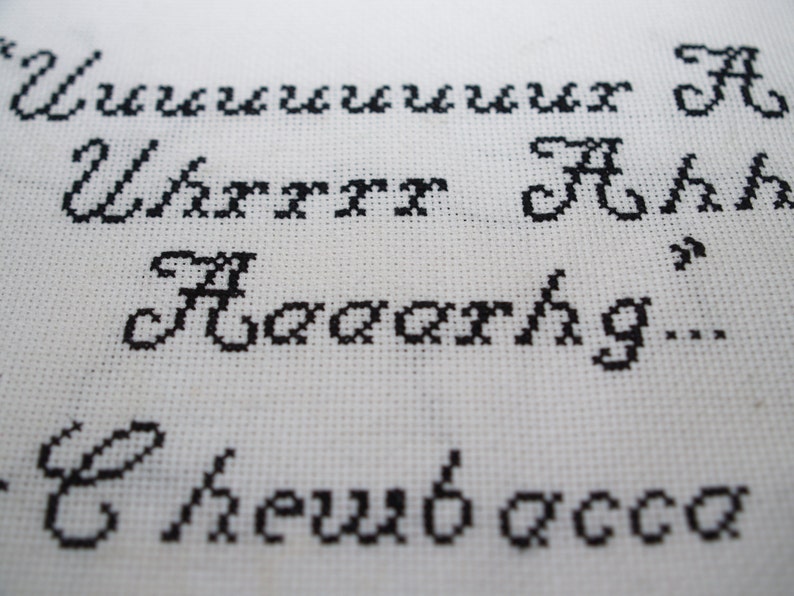 "Uuuuuuuuur A
Uhrrrr Ahh
Aaaarhg"...
-Chewbacca